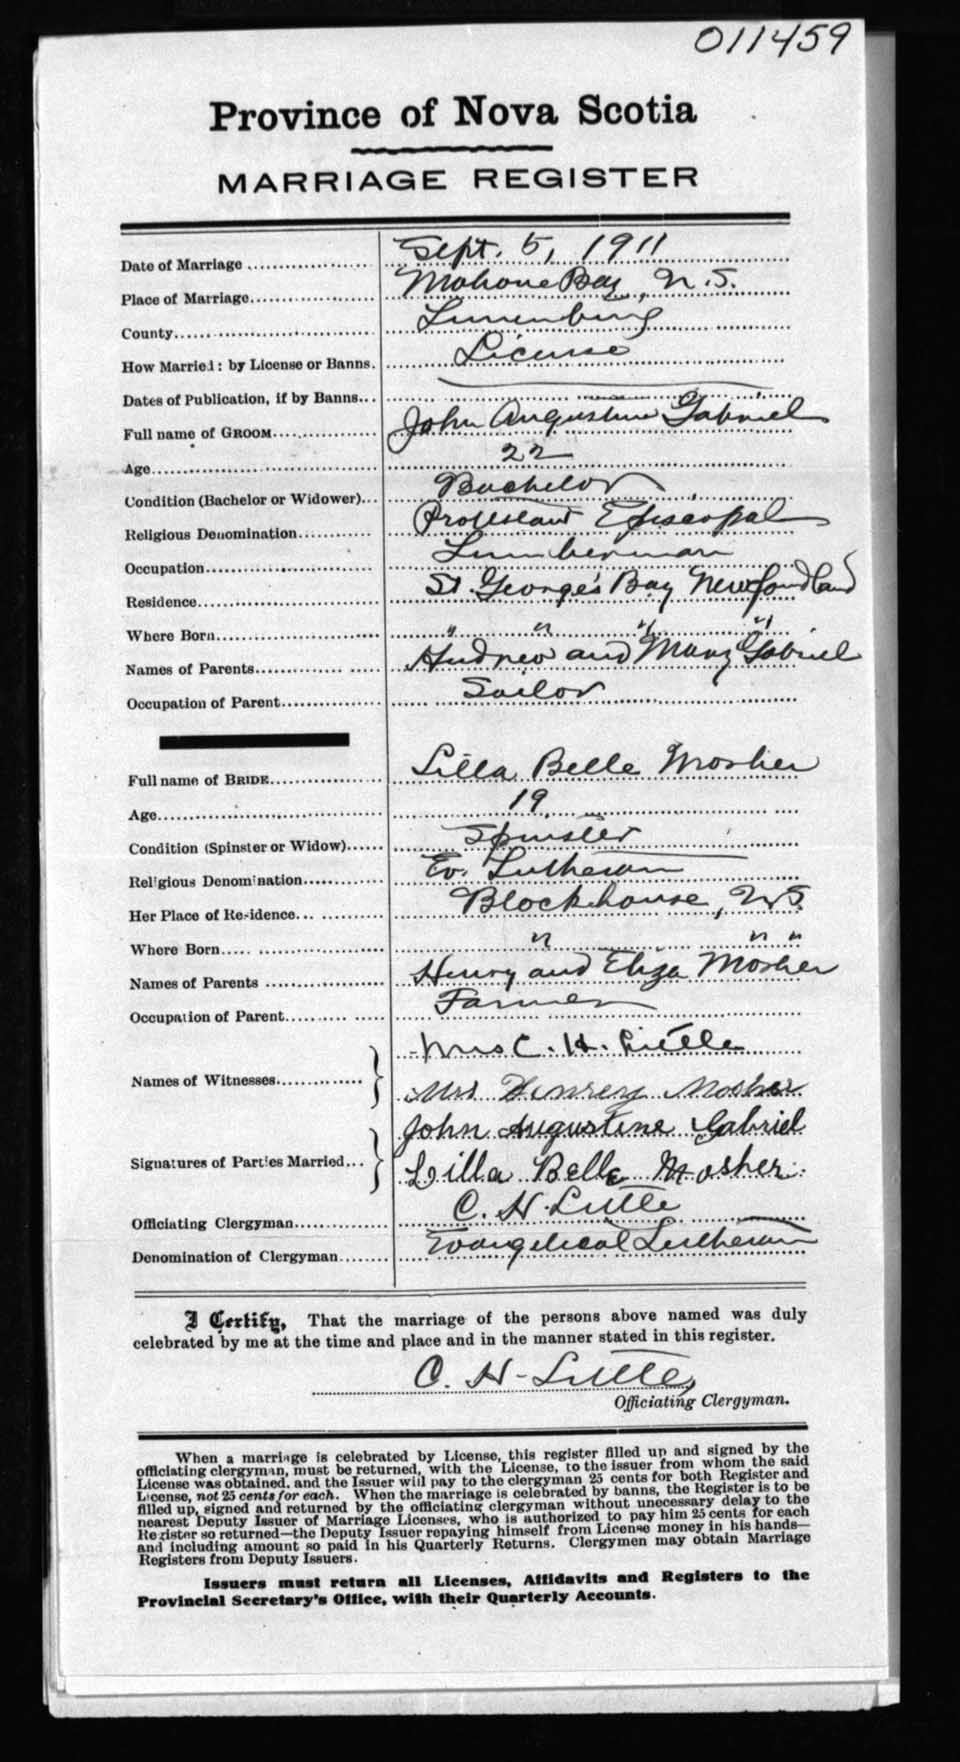 011459
Province of Nova Scotia
MARRIAGE REGISTER
Date of Marriage Sept. 5, 1911
Place of Marriage Mahone Bay, N.S.
County Lunenburg
How Married: by License or Banns. License
Dates of Publication, if by Banns
Full name of GROOM John Augustine Gabriel
Age 22
Condition (Bachelor or Widower) Bachelor
Religious Denomination Protestant Episcopal
Occupation Lumberman
Residence St. George's Bay Newfoundland
Where Born " " " "
Names of Parents Andrew and Mary Gabriel
Occupation of Parent Sailor
Full name of BRIDE Lilla Belle Mosher
Age 19
Condition (Spinster or Widow) Spinster
Religious Denomination Ev. Lutheran
Her Place of Residence Blockhouse, N.S.
Where Born " " "
Names of Parents Henry and Eliza Mosher
Occupation of Parent Farmer
Names of Witnesses Mrs C. H. Little
Mrs Henrey Mosher
Signatures of Parties Married John Augustine Gabriel
Lilla Belle Mosher
Officiating Clergyman C. H. Little
Denomination of Clergyman Evangelical Lutheran
I Certify, That the marriage of the persons above named was duly
celebrated by me at the time and place and in the manner stated in this register.
C. H. Little,
Officiating Clergyman.
When a marriage is celebrated by License, this register filled up and signed by the
officiating clergyman, must be returned, with the License, to the issuer from whom the said
License was obtained, and the Issuer will pay to the clergyman 25 cents for both Register and
License, not 25 cents for each. When the marriage is celebrated by banns, the Register is to be
filled up, signed and returned by the officiating clergyman without unnecessary delay to the
nearest Deputy Issuer of Marriage Licenses, who is authorized to pay him 25 cents for each
Register so returned—the Deputy Issuer repaying himself from License money in his hands—
and including amount so paid in his Quarterly Returns. Clergymen may obtain Marriage
Registers from Deputy Issuers.
Issuers must return all Licenses, Affidavits and Registers to the
Provincial Secretary's Office, with their Quarterly Accounts.